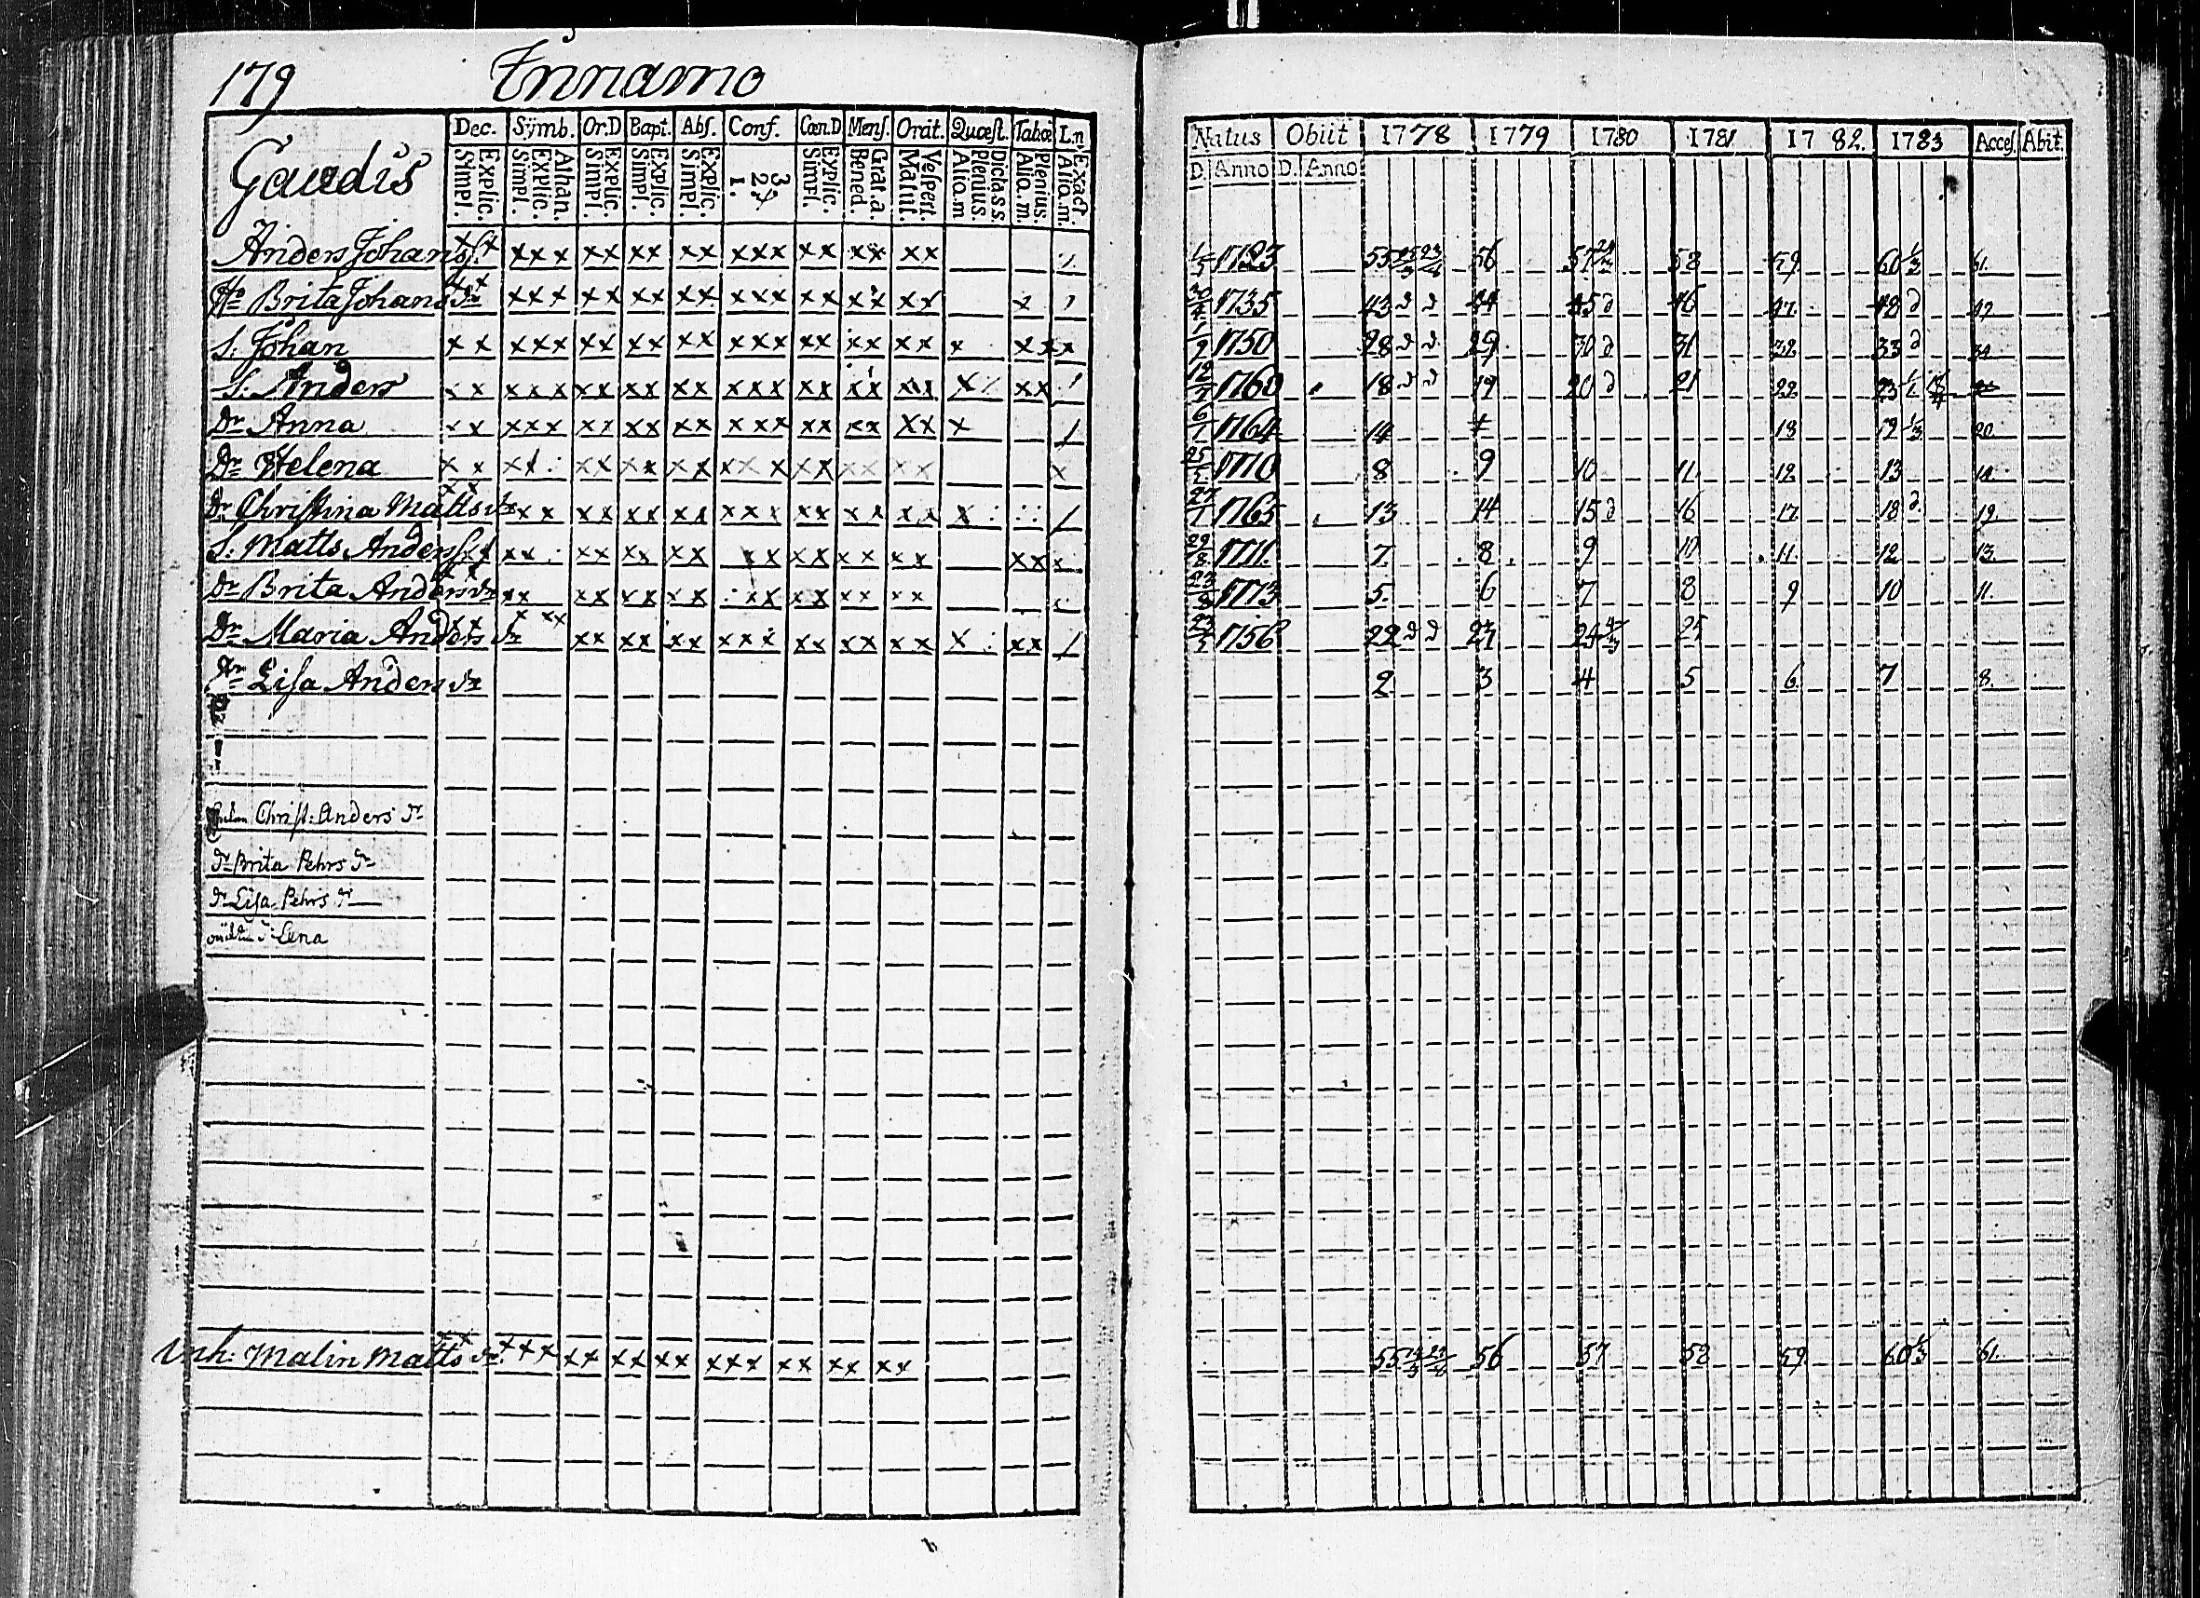 179 Innamo
Dec. Sÿmb. Or.D Bapt. Abſ. Conf. Cœn.D Menſ. Orat. Quæſt. Tabœ L.n.
Gaudis
Simpl. Explic. Simpl. Explic. Athan. Simpl. Explic. Simpl. Explic. Simpl. Explic. 1. 2. 3 Simpl. Explic. Bened. Grat.a. Matut. Veſpert. Alio.m Plenius. Dicta.s.s. Alio.m. Plenius. Alio.m. Exact.
Anders Johansſ.
Hu Brita Johans dr
S. Johan
S. Anders
Dr Anna
Dr Helena
Dr Chriſtina Matts dr
S. Matts Andersſ
Dr Brita Anders dr
Dr Maria Anders dr
Dr Liſa Anders dr
Chriſt: Anders dr
dr Brita Pehrs dr
dr Liſa Pehrs dr
Lena
Inh: Malin Matts dr
Natus Obiit 1778 1779 1780 1781 1782. 1783 Acceſ. Abit.
D. Anno D. Anno
1/5 1723 55 56 57 58 59 60 1/3 61.
30/4 1735 43 d d 44 45 d 46 47. 48 d 49
1/9 1750 28 d d 29. 30 d 31 32. 33 d 34
12/7 1760 18 d d 19 20 d 21 22. 23
6/1 1764 14 18 19 1/3 20.
25/5 1770 8 9 10 11. 12. 13 14.
27/7 1765 13 14 15 d 16 17. 18 d. 19.
29/8 1771. 7. 8. 9 10 11. 12 13.
23/8 1773 5. 6 7 8 9 10 11.
23/7 1756 22 d d 24 25
2 3 4 5 6. 7 8.
55 56 57 58 59. 60 1/3 61.